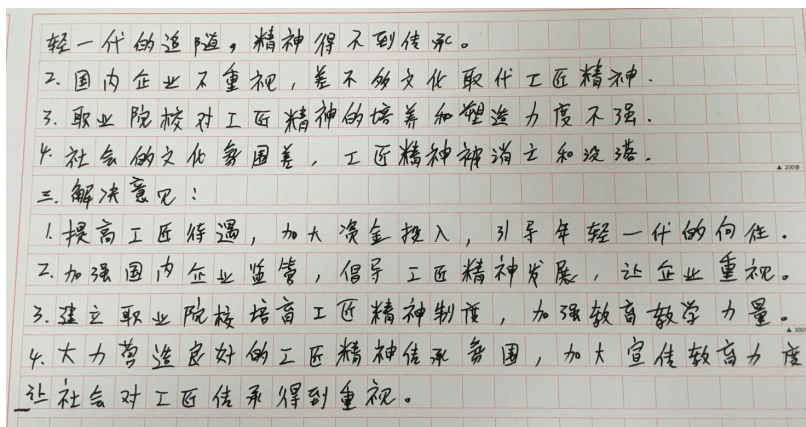 轻一代的追随，精神得不到传承。
2.国内企业不重视，差不多文化取代工匠精神.
3.职业院校对工匠精神的培养和塑造力度不强.
4.社会的文化氛围差，工匠精神被消亡和没落.
▲200字
三.解决意见：
1.提高工匠待遇，加大资金投入，引导年轻一代的向往.
2.加强国内企业监管，倡导工匠精神发展，让企业重视。
3.建立职业院校培育工匠精神制度，加强教育教学力量。
▲300
4.大力营造良好的工匠精神传承氛围，加大宣传教育力度
让社会对工匠传承得到重视。